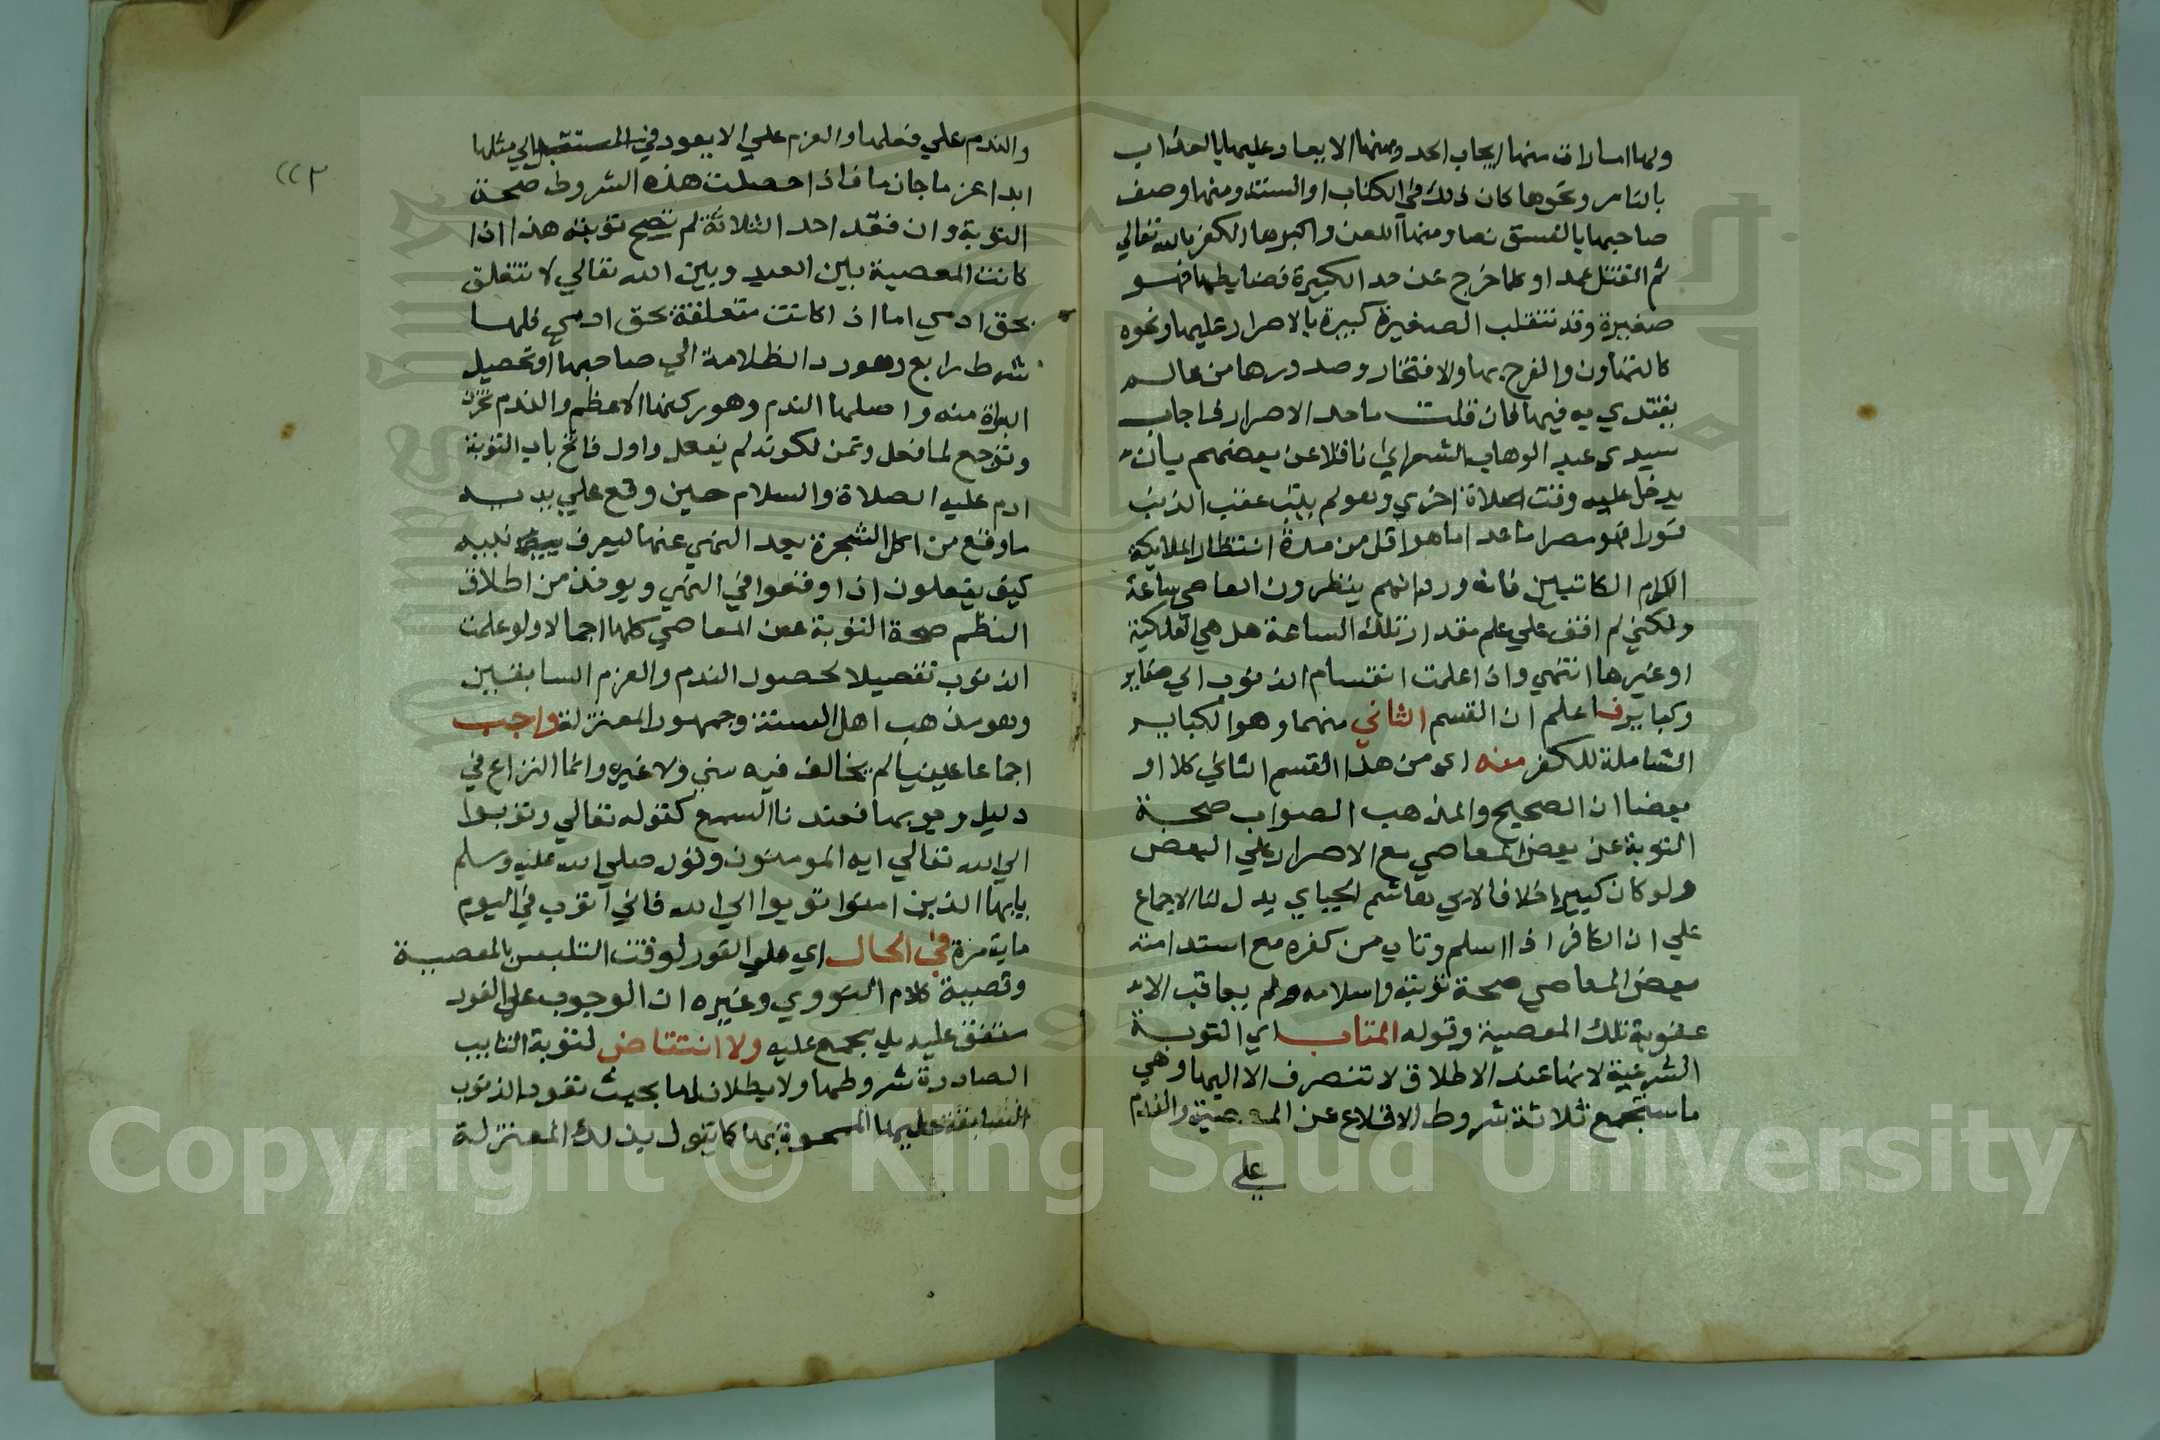 ولها امارات منها ايجاب الحد ومنها الايعاد عليها بالعذاب
بالنار ونحوها كان ذلك في الكتاب او السنة ومنها وصف
صاحبها بالفسق نصا ومنها اللعن واكبرها الكفر بالله تعالي
ثم القتل عمدا وكلما خرج عن حد الكبيرة فضابطها فهو
صغيرة وقد تنقلب الصغيرة كبيرة بالاصرار عليها ونحوه
كالتهاون والفرح بها والافتخار وصدورها من عالم
يقتدي به فيها فان قلت ما حد الاصرار فاجاب
سيدي عبد الوهاب الشعراني ناقلا عن بعضهم بان
يدخل عليه وقت صلاة اخري وهو لم يتب عقب الذنب
فورا فهو مصر ما عدا ما هو اقل من مدة انتظار الملايكة
الكرام الكاتبين فانه ورد انهم ينظرون العاصي ساعة
ولكني لم اقف علي علم مقدار تلك الساعة هل هي الفلكية
او غيرها انتهي واذا علمت انقسام الذنوب الي صغاير
وكباير فاعلم ان القسم الثاني منهما وهو الكباير
الشاملة للكفر منه اي من هذا القسم الثاني كلا او
بعضا ان الصحيح والمذهب الصواب صحة
التوبة عن بعض المعاصي مع الاصرار علي البعض
ولو كان كبيرا خلافا لابي هاشم الجباي يدل لنا الاجماع
علي ان الكافر اذا اسلم وتاب من كفره مع استدامته
بعض المعاصي صحة توبته واسلامه ولم يعاقب الا
عقوبة تلك المعصية وقوله المتاب اي التوبة
الشرعية لانها عند الاطلاق لا تنصرف الا اليها وهي
ما استجمع ثلاثة شروط الاقلاع عن المعصية والندم
علي
٢٢٣
والندم علي فعلها والعزم علي الا يعود في المستقبل الي مثلها
ابدا عزما جازما فاذا حصلت هذه الشروط صحة
التوبة وان فقد احد الثلاثة لم تصح توبته هذا اذا
كانت المعصية بين العبد وبين الله تعالي لا تتعلق
بحق ادمي اما اذا كانت متعلقة بحق ادمي فلها
شرط رابع وهو رد الظلامة الي صاحبها او تحصيل
البراة منه واصلها الندم وهو ركنها الاعظم والندم تحزن
وتوجع لما فعل وتمن لكونه لم يفعل واول فاتح باب التوبة
ادم عليه الصلاة والسلام حين وقع علي يديه
ما وقع من اكل الشجرة بعد النهي عنها ليعرف بنيه
كيف يفعلون اذا وقعوا في النهي ويوخذ من اطلاق
النظم صحة التوبة عن المعاصي كلها اجمالا ولو علمت
الذنوب تفصيلا لحصول الندم والعزم السابقين
وهو مذهب اهل السنة وجمهور المعتزلة واجب
اجماعا عينيا لم يخالف فيه سني ولا غيره وانما النزاع في
دليل وجوبها فعندنا السمع كقوله تعالي وتوبوا
الي الله تعالي ايه المومنون وقوله صلي الله عليه وسلم
يايها الذين امنوا توبوا الي الله فاني اتوب في اليوم
ماية مرة في الحال اي علي الفور لوقت التلبس بالمعصية
وقضية كلام النووي وغيره ان الوجوب علي الفور
متفق عليه بل مجمع عليه ولا انتقاض لتوبة التايب
الصادرة بشروطها ولا بطلان لها بحيث تعود الذنوب
السابقة عليها الممحوة بها كما يقول بذلك المعتزلة
Copyright © King Saud University